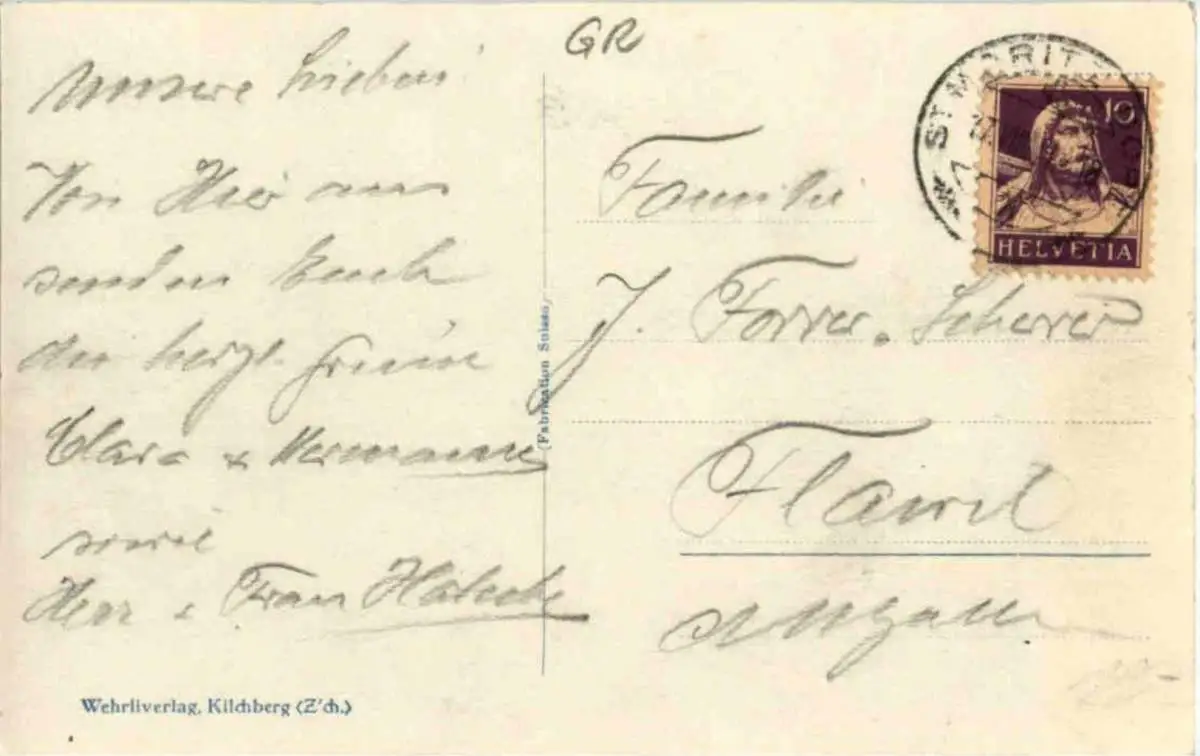 GR
Unsere Lieben!
Von Hier aus
senden Euch
die herzl. Grüsse
Clara & Hermann
sowie
Herr & Frau
Familie
J. Forrer-Scherrer
Flawil
St. Gallen
ST. MORITZ
10
HELVETIA
(Fabrication Suisse)
Wehrliverlag, Kilchberg (Z'ch.)